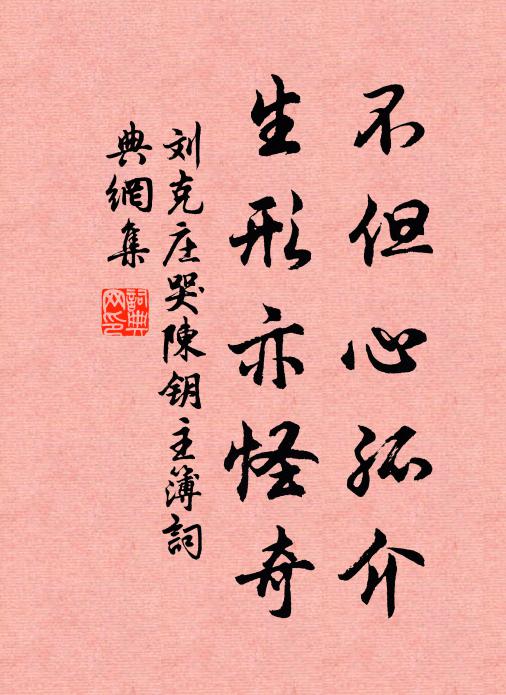 不但心孤介
生形亦怪奇
刘克庄哭陳钥主簿詞
典網集
詞典
网印